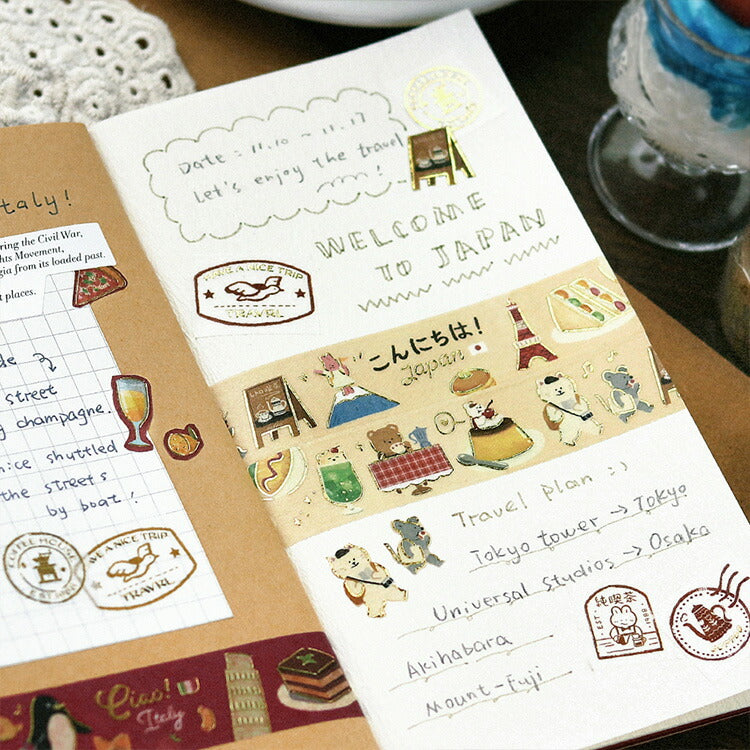 taly!
ring the Civil War,
ghts Movement,
gia from its loaded past.
t places.
de
street
g champagne.
nice shuttled
the streets
by boat!
COFFEE HOUSE
WE A NICE TRIP
TRAVRL
Ciao!
Italy
Date : 11.10 ~ 11.17
Let's enjoy the travel
!
WELCOME
TO JAPAN
HAVE A NICE TRIP
TRAVRL
こんにちは!
Japan
Travel plan :)
Tokyo tower → Tokyo
Universal Studios → Osaka
Akihabara
Mount-Fuji
純喫茶
EST